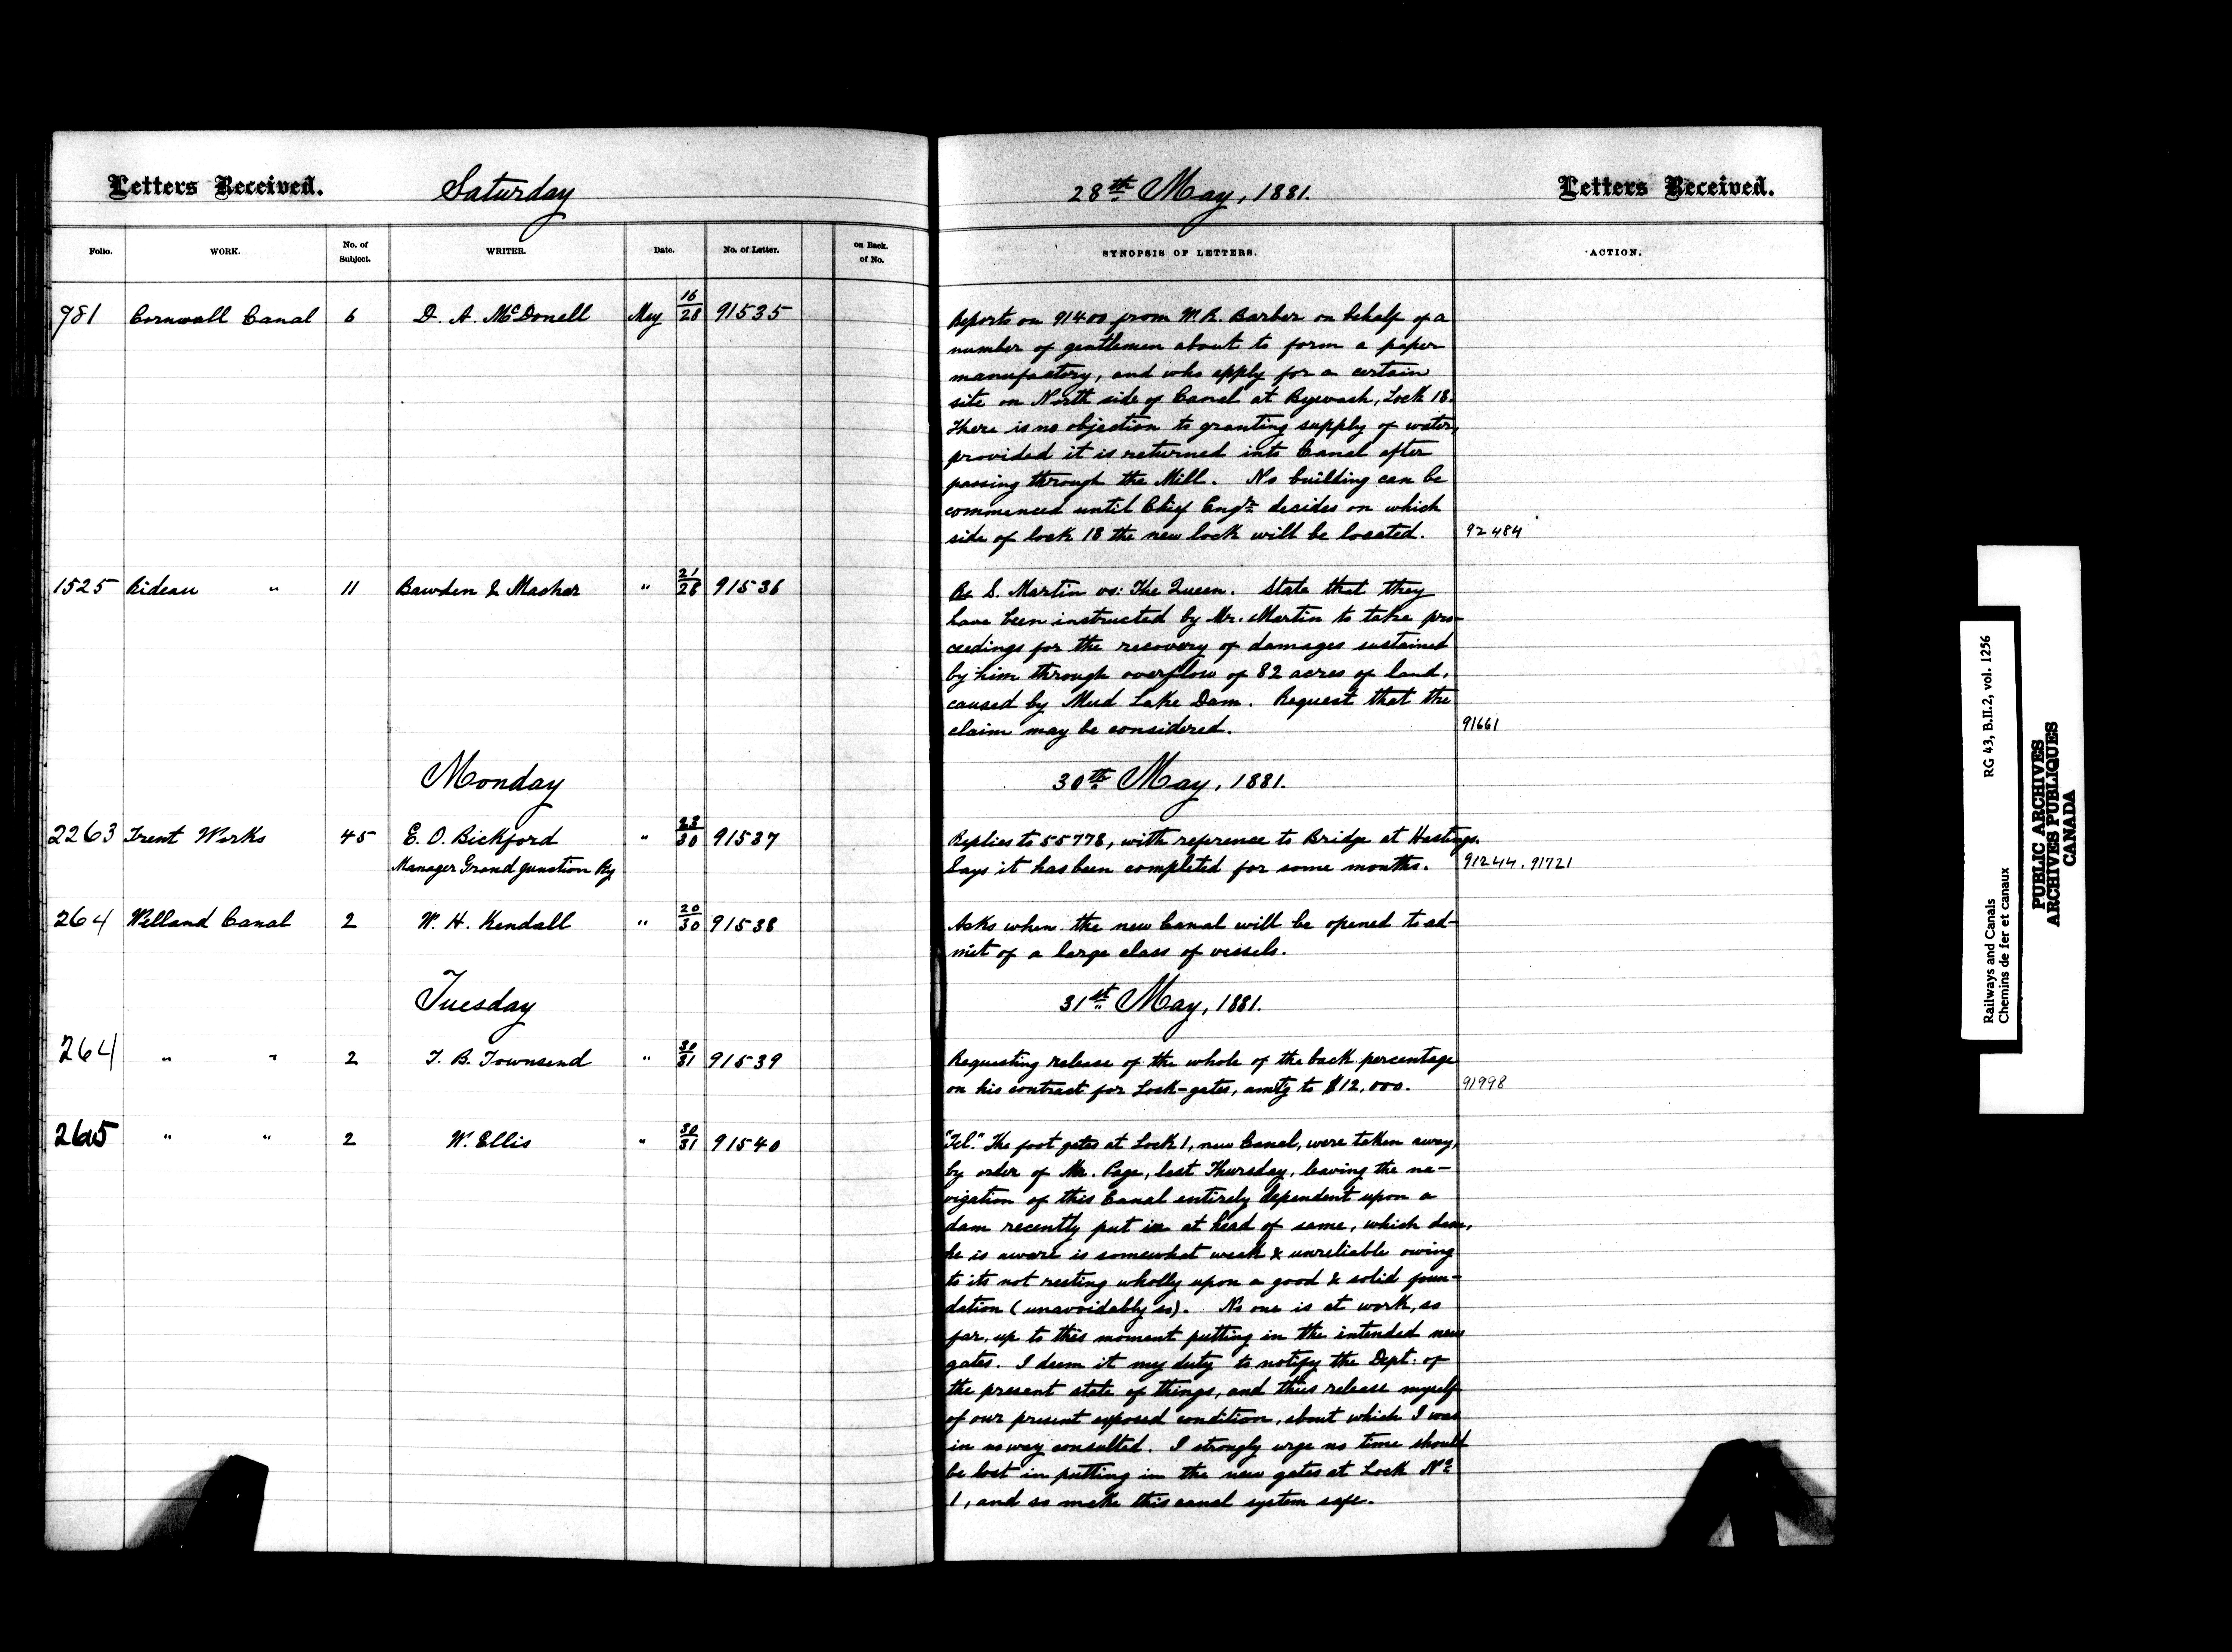 Letters Received. Saturday 28th May, 1881. Letters Received.
Folio. WORK. No. of Subject. WRITER. Date. No. of Letter. on Back. of No. SYNOPSIS OF LETTERS. ACTION.
981 Cornwall Canal 6 D. A. McDonell May 16/28 91535 Reports on 91400 from W. R. Barber on behalf of a
number of gentlemen about to form a paper
manufactory, and who apply for a certain
site on North side of Canal at Bywash, Lock 18.
There is no objection to granting supply of water,
provided it is returned into Canal after
passing through the Mill. No building can be
commenced until Chief Engr. decides on which
side of lock 18 the new lock will be located. 92484
1525 Rideau " 11 Bawden & Machar " 21/28 91536 Re S. Martin vs: The Queen. State that they
have been instructed by Mr. Martin to take pro-
ceedings for the recovery of damages sustained
by him through overflow of 82 acres of land,
caused by Mud Lake Dam. Request that the
claim may be considered. 91661
Monday 30th May, 1881.
2263 Trent Works 45 E. O. Bickford " 23/30 91537 Replies to 55778, with reference to Bridge at Hastings.
Manager Grand Junction Ry Says it has been completed for some months. 91244. 91721
264 Welland Canal 2 W. H. Kendall " 20/30 91538 Asks when the new Canal will be opened to ad-
mit of a large class of vessels.
Tuesday 31st May, 1881.
264 " " 2 T. B. Townsend " 30/31 91539 Requesting release of the whole of the back percentage
on his contract for Lock-gates, amtg to $12,000. 91998
265 " " 2 W. Ellis " 30/31 91540 "Tel." The foot gates at Lock 1, new Canal, were taken away,
by order of Mr. Page, last Thursday, leaving the na-
vigation of this Canal entirely dependent upon a
dam recently put in at head of same, which dam,
he is aware is somewhat weak & unreliable owing
to its not resting wholly upon a good & solid foun-
dation (unavoidably so). No one is at work, so
far, up to this moment putting in the intended new
gates. I deem it my duty to notify the Dept. of
the present state of things, and thus release myself
of our present exposed condition, about which I was
in no way consulted. I strongly urge no time should
be lost in putting in the new gates at Lock No.
1, and so make this canal system safe.
Railways and Canals RG 43, B.II.2, vol. 1256
Chemins de fer et canaux
PUBLIC ARCHIVES
ARCHIVES PUBLIQUES
CANADA